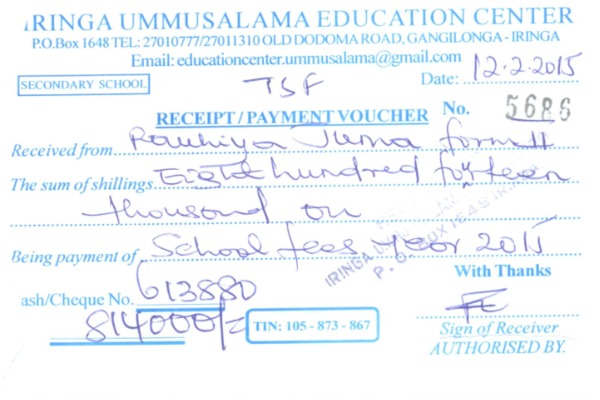 IRINGA UMMUSALAMA EDUCATION CENTER
P.O.Box 1648 TEL: 27010777/27011310 OLD DODOMA ROAD, GANGILONGA - IRINGA
Email: educationcenter.ummusalama@gmail.com
SECONDARY SCHOOL TSF Date: 12.2.2015
RECEIPT / PAYMENT VOUCHER No. 5686
Received from Rauhiya Juma form II
The sum of shillings Eight hundred forteen
thousand on
Being payment of School fees year 2015
IRINGA
P. O. BOX 1648 IRINGA
With Thanks
ash/Cheque No. 613880
814000/=
TIN: 105 - 873 - 867
Sign of Receiver
AUTHORISED BY.